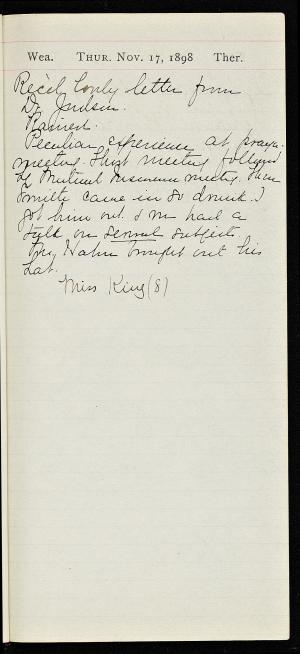 Wea. THUR. NOV. 17, 1898 Ther.
Rec'd lovely letter from
Dr. Judson.
Rained.
Peculiar experience at prayer
meeting. Short meeting followed
by Mutual Insurance meeting. Sam
came in so drunk. I
got him out. & we had a
talk on sexual subjects.
Mr. Hahn brought out his
hat.
Miss King (8)